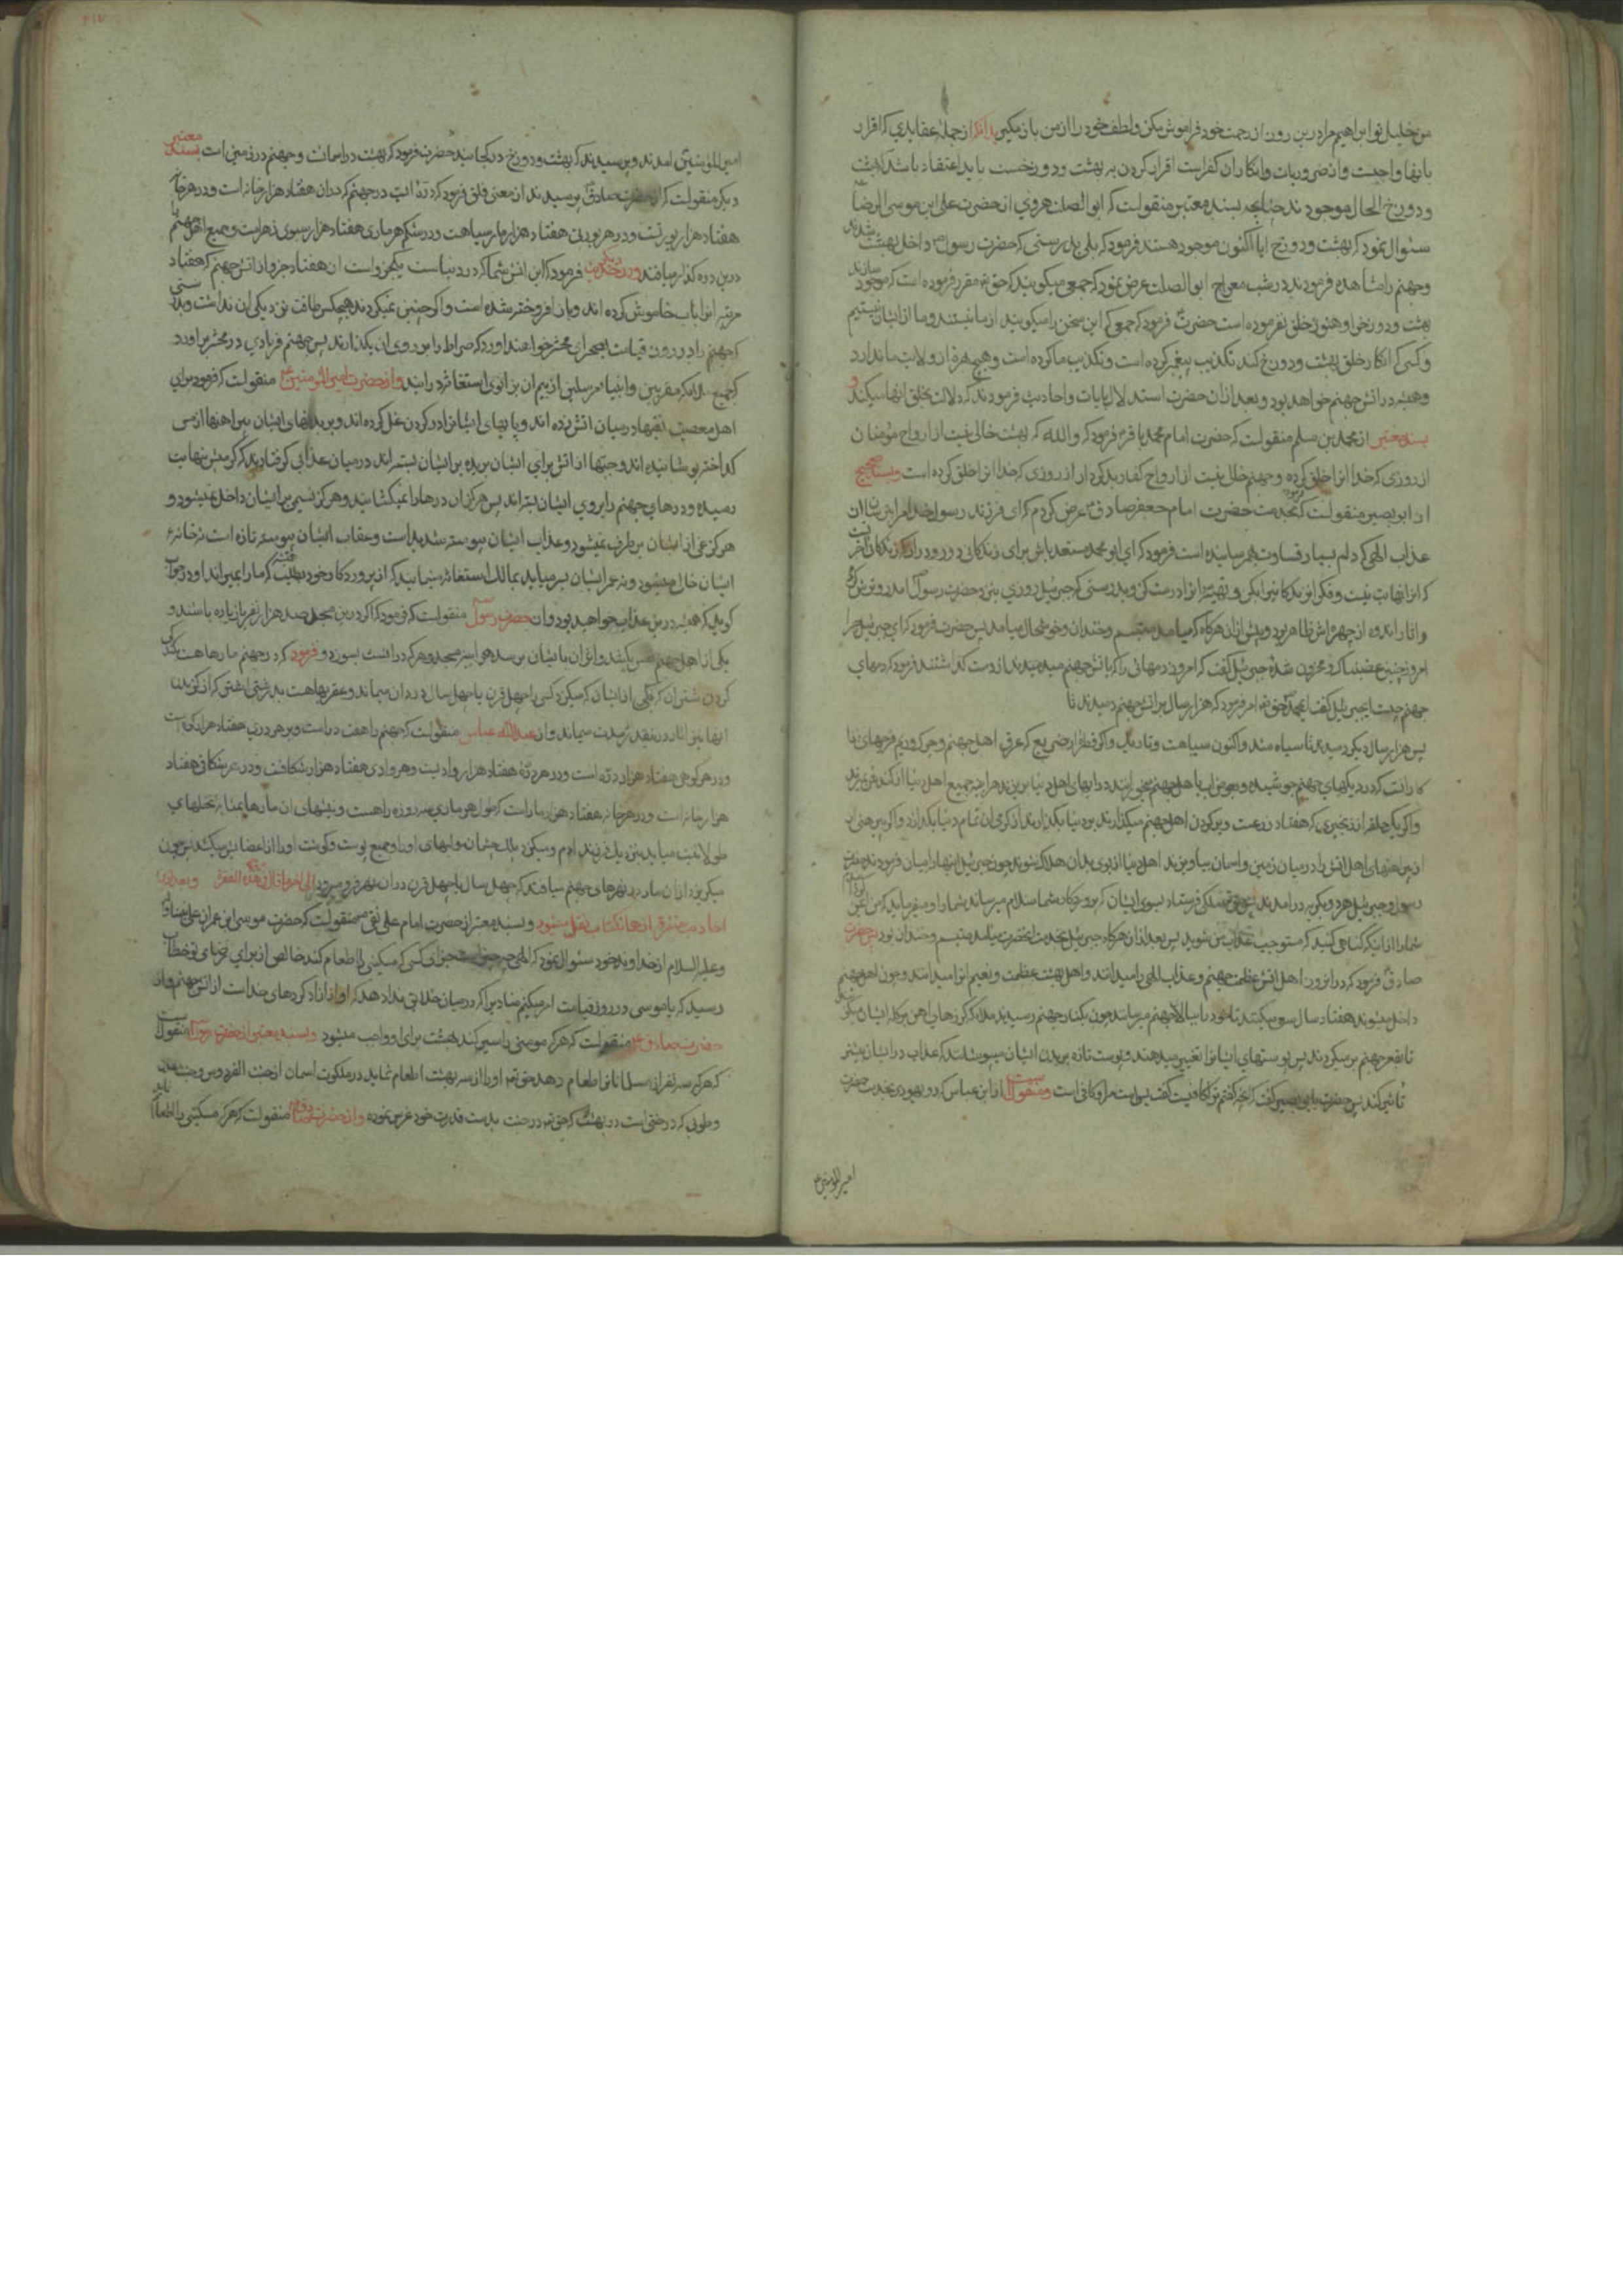 من خلیل تو ابراهیم مرا درین روز از رحمت خود فراموش مکن و لطف خود را از من بازمگیر بدانکه از جمله عقایدی که اقرار
بانها واجبست و از ضروریات و انکار ان کفر است اقرار کردن به بهشت و دوزخست باید اعتقاد باشد که بهشت
و دوزخ الحال موجودند چنانچه بسند معتبر منقولست که ابوالصلت هروی از حضرت علی ابن موسی الرضا
سئوال نمود که بهشت و دوزخ ایا اکنون موجود هستند فرمود که بلی بدرستی که حضرت رسول داخل بهشت شدند
و جهنم را مشاهده فرمودند در شب معراج ابوالصلت عرض نمود که جمعی میکویند که حق تعه مقرر فرموده است که موجود سازند
بهشت و دوزخ را و هنوز خلق نفرموده است حضرت فرمود که جمعی که این سخن را میکویند از ما نیستند و ما از ایشان نیستیم
و کسی که انکار خلق بهشت و دوزخ کند تکذیب پیغمبر کرده است و تکذیب ما کرده است و هیچ بهره از ولایت ما ندارد
و همیشه در اتش جهنم خواهد بود و بعد از ان حضرت استدلال بایات و احادیث فرمودند که دلالت بخلق انها میکند و
بسند معتبر از محمد بن مسلم منقولست که حضرت امام محمد باقر فرمود که والله که بهشت خالی نیست از ارواح مؤمنان
از روزی که خدا انرا خلق کرده و جهنم خالی نیست از ارواح کفار بدکردار از روزی که خدا انرا خلق کرده است و بسند صحیح
از ابو بصیر منقولست که بخدمت حضرت امام جعفر صادق عرض کردم که ای فرزند رسول خدا مرا بترسان از
عذاب الهی که دلم بسیار قساوت بهم رسانیده است فرمود که ای ابو محمد مستعد باش برای زندکانی دور و دراز که زندکانی اخرتست
که انرا نهایت نیست و فکر ان زندکانی را بکن و تهیه انرا درست کن و بدرستی که جبرئیل روزی بنزد حضرت رسول امد رو ترش کرده
و اثار اندوه از چهره اش ظاهر بود و پیش از ان هرکاه که میامد متبسم و خندان و خوشحال میامد پس حضرت فرمود که ای جبرئیل چرا
امروز چنین غضبناک و محزون شده جبرئیل کفت که امروز دمهائی را که باتش جهنم میدمیدند از دست کذاشتند فرمود که دمهای
جهنم چیست ایجبرئیل کفت ایمحمد حق تعه امر فرمود که هزار سال بر اتش جهنم دمیدند تا
پس هزار سال دیکر دمیدند تا سیاه شد و اکنون سیاهست و تاریک و اکر قطرۀ از ضریع که عرق اهل جهنم و چرک و ریم فرجهای زنا
کارانست که در دیکهای جهنم جوشیده و بعوض اب باهل جهنم میخورانند در ابهای اهل دنیا بریزند هر اینه جمیع اهل دنیا از کندش بمیرند
و اکر یکحلقه از زنجیری که هفتاد زرعست و بر کردن اهل جهنم میکذارند بر دنیا بکذارند از کرمی ان تمام دنیا بکدازد و اکر پیرهنی از
از پیراهنهای اهل اتش را در میان زمین و اسمان بیاویزند اهل دنیا از بوی بد ان هلاک شوند چون جبرئیل اینها را بیان فرمودند حضرت
رسول و جبرئیل هر دو بکریه در امدند پس حق تعه ملکی فرستاد بسوی ایشان که پروردکار شما سلام میرساند شما را و میفرماید که من ایمن
شما را از اینکه کناهی کنید که مستوجب عذاب من شوید پس بعد از ان هرکاه جبرئیل بخدمت انحضرت میامد متبسم و خندان بود پس حضرت
صادق فرمود که در انروز اهل اتش عظمت جهنم و عذاب الهی را میدانند و اهل بهشت عظمت و نعیم انرا میدانند و چون اهل جهنم
داخل میشوند هفتاد سال سعی میکنند تا خود را ببالای جهنم میرسانند چون بکنار جهنم رسیدند ملائکه کرزهای اهن بر کله ایشان میکوبند
تا بقعر جهنم برمیکردند پس پوستهای ایشانرا تغییر میدهند و پوست تازه بر بدن ایشان میپوشانند که عذاب در ایشان بیشتر
تاثیر کند پس حضرت بابی بصیر کفت که انچه کفتم ترا کافیست کفت بس است مرا و کافی است و منقولست از ابن عباس که دو یهودی بخدمت حضرت
امیرالمومنین
امیرالمؤمنین امدند و پرسیدند که بهشت و دوزخ در کجا میباشد حضرت فرمود که بهشت در اسمانست و جهنم در زمین است بسند معتبر
دیکر منقولست که از حضرت صادق پرسیدند از معنی فلق فرمود که درۀ ایست در جهنم که در ان هفتاد هزار خانه است و در هر خانه
هفتاد هزار بورتست و در هر بورتی هفتاد هزار مار سیاهست و در شکم هر ماری هفتاد هزار سبوی زهر است و جمیع اهل جهنم را
درین دره کذار میافتد و در حدیث دیکر فرمود که این اتش شما که در دنیاست یکجزو است از هفتاد جزو از اتش جهنم که هفتاد
مرتبه انرا باب خاموش کرده اند و باز افروخته شده است و اکر چنین نمیکردند هیچکس طاقت نزدیکی ان نداشت و بدرستی
که جهنم را در روز قیامت بصحرای محشر خواهند اورد که صراط را بر روی ان بکذارند پس جهنم فریادی در محشر براورد
که جمیع ملائکه مقربین و انبیاء مرسلین از بیم ان بزانوی استغاثه درایند و از حضرت امیرالمومنین منقولست که فرمود برای
اهل معصیت نقبها در میان اتش زده اند و پایهای ایشانرا در کردن غل کرده اند و بر بدنهای ایشان پیراهنها از مس
کداخته پوشانیده اند و جبّها از اتش برای ایشان بریده بر ایشان بسته اند در میان عذابی کرفتارند که کرمیش بنهایت
رسیده و درهای جهنم را بروی ایشان بسته اند پس هرکز ان درها را نمیکشایند و هرکز نسیمی بر ایشان داخل نمیشود و
هرکز غمی از ایشان برطرف نمیشود و عذاب ایشان پیوسته شدید است و عقاب ایشان پیوسته تازه است نه خانه
ایشان خالی میشود و نه عمر ایشان بسر میاید بمالک استغاثه مینمایند که از پروردکار خود بطلب که ما را بمیراند او در جواب
کوید که همیشه درین عذاب خواهید بود و از حضرت رسول منقولست که فرمود که اکر درین مسجد صد هزار نفر یا زیاده باشند و
یکی از اهل جهنم نفس بکشد و اثر ان بایشان برسد هر اینه مسجد و هر که در انست بسوزد و فرمود که در جهنم مارها هست بکندکی
کردن شتران که یکی از ایشان که میکزد کسی را چهل قرن یا چهل سال در درد ان میماند و عقربها هست بدرشتی استر که از کزیدن
انها نیز اثار در انقدر مدت میماند و از عبدالله عباس منقولست که جهنم را هفت در است و بر هر دری هفتاد هزار کوه است
و در هر کوهی هفتاد هزار دره است و در هر دره هفتاد هزار وادیست و هر وادی هفتاد هزار شکافست و در هر شکافی هفتاد
هزار خانه است و در هر خانه هفتاد هزار مار است که طول هر ماری سه روزه راهست و نیشهای ان مارها بمثابه نخلهای
طولانیست میاید بنزدیک فرزند ادم و میکیرد پلک چشمان و لبهای او را و جمیع پوست و کوشت او را از اعضایش میکشد پس چون
میکریزد از ان مار در نهرهای جهنم میافتد که چهل سال یا چهل قرن در ان نهر فرو میرود
احادیث متفرقه از همان کتاب نقل میشود و بسند معتبر از حضرت امام علی نقی منقولست که حضرت موسی ابن عمران علی نبینا
و علیه السلام از خداوند خود سئوال نمود که الهی چه چیز است جزای کسی که مسکینی را اطعام کند خالص از برای رضای تو خطاب
رسید که یا موسی در روز قیامت امر میکنم منادیرا که در میان خلایق ندا دهد که او از ازاد کردهای خداست از اتش جهنم و از
حضرت صادق منقولست که هر که مومنی را سیر کند بهشت برای او واجب میشود و بسند معتبر از حضرت رسول منقولست
که هر که سه نفر از مسلمانانرا طعام دهد حق تعه او را از سه بهشت اطعام نماید در ملکوت اسمان از جنت الفردوس و جنت عدن
و طوبی که درختی است در بهشت که حق تعه در جنت بدست قدرت خود غرس نموده و از حضرت صادق منقولست که هر که مسکینی را طعام